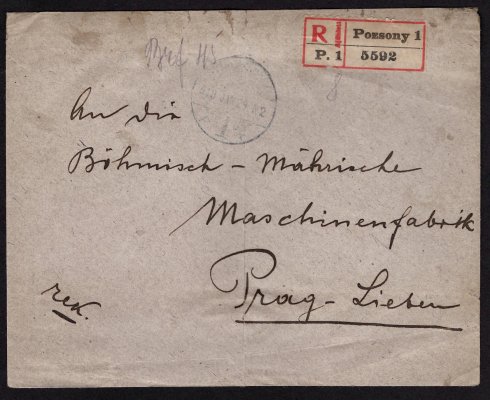 R Pozsony 1
P. 1 5592
An die
Böhmisch - Mährische
Maschinenfabrik
Prag - Lieben
rek.